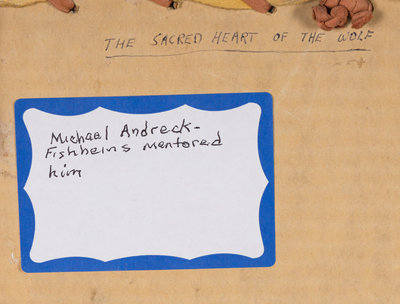 THE SACRED HEART OF THE WOLF
Michael Andreck-
Fishbeins mentored
him